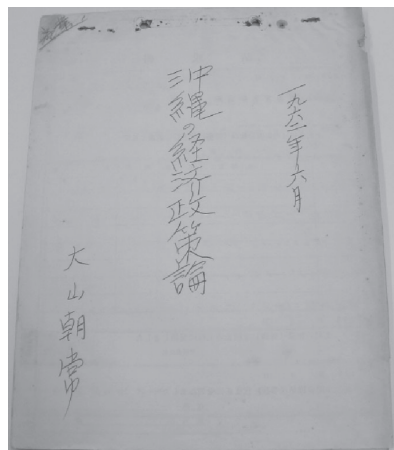 一九六二年六月
沖縄の経済政策論
大山朝常